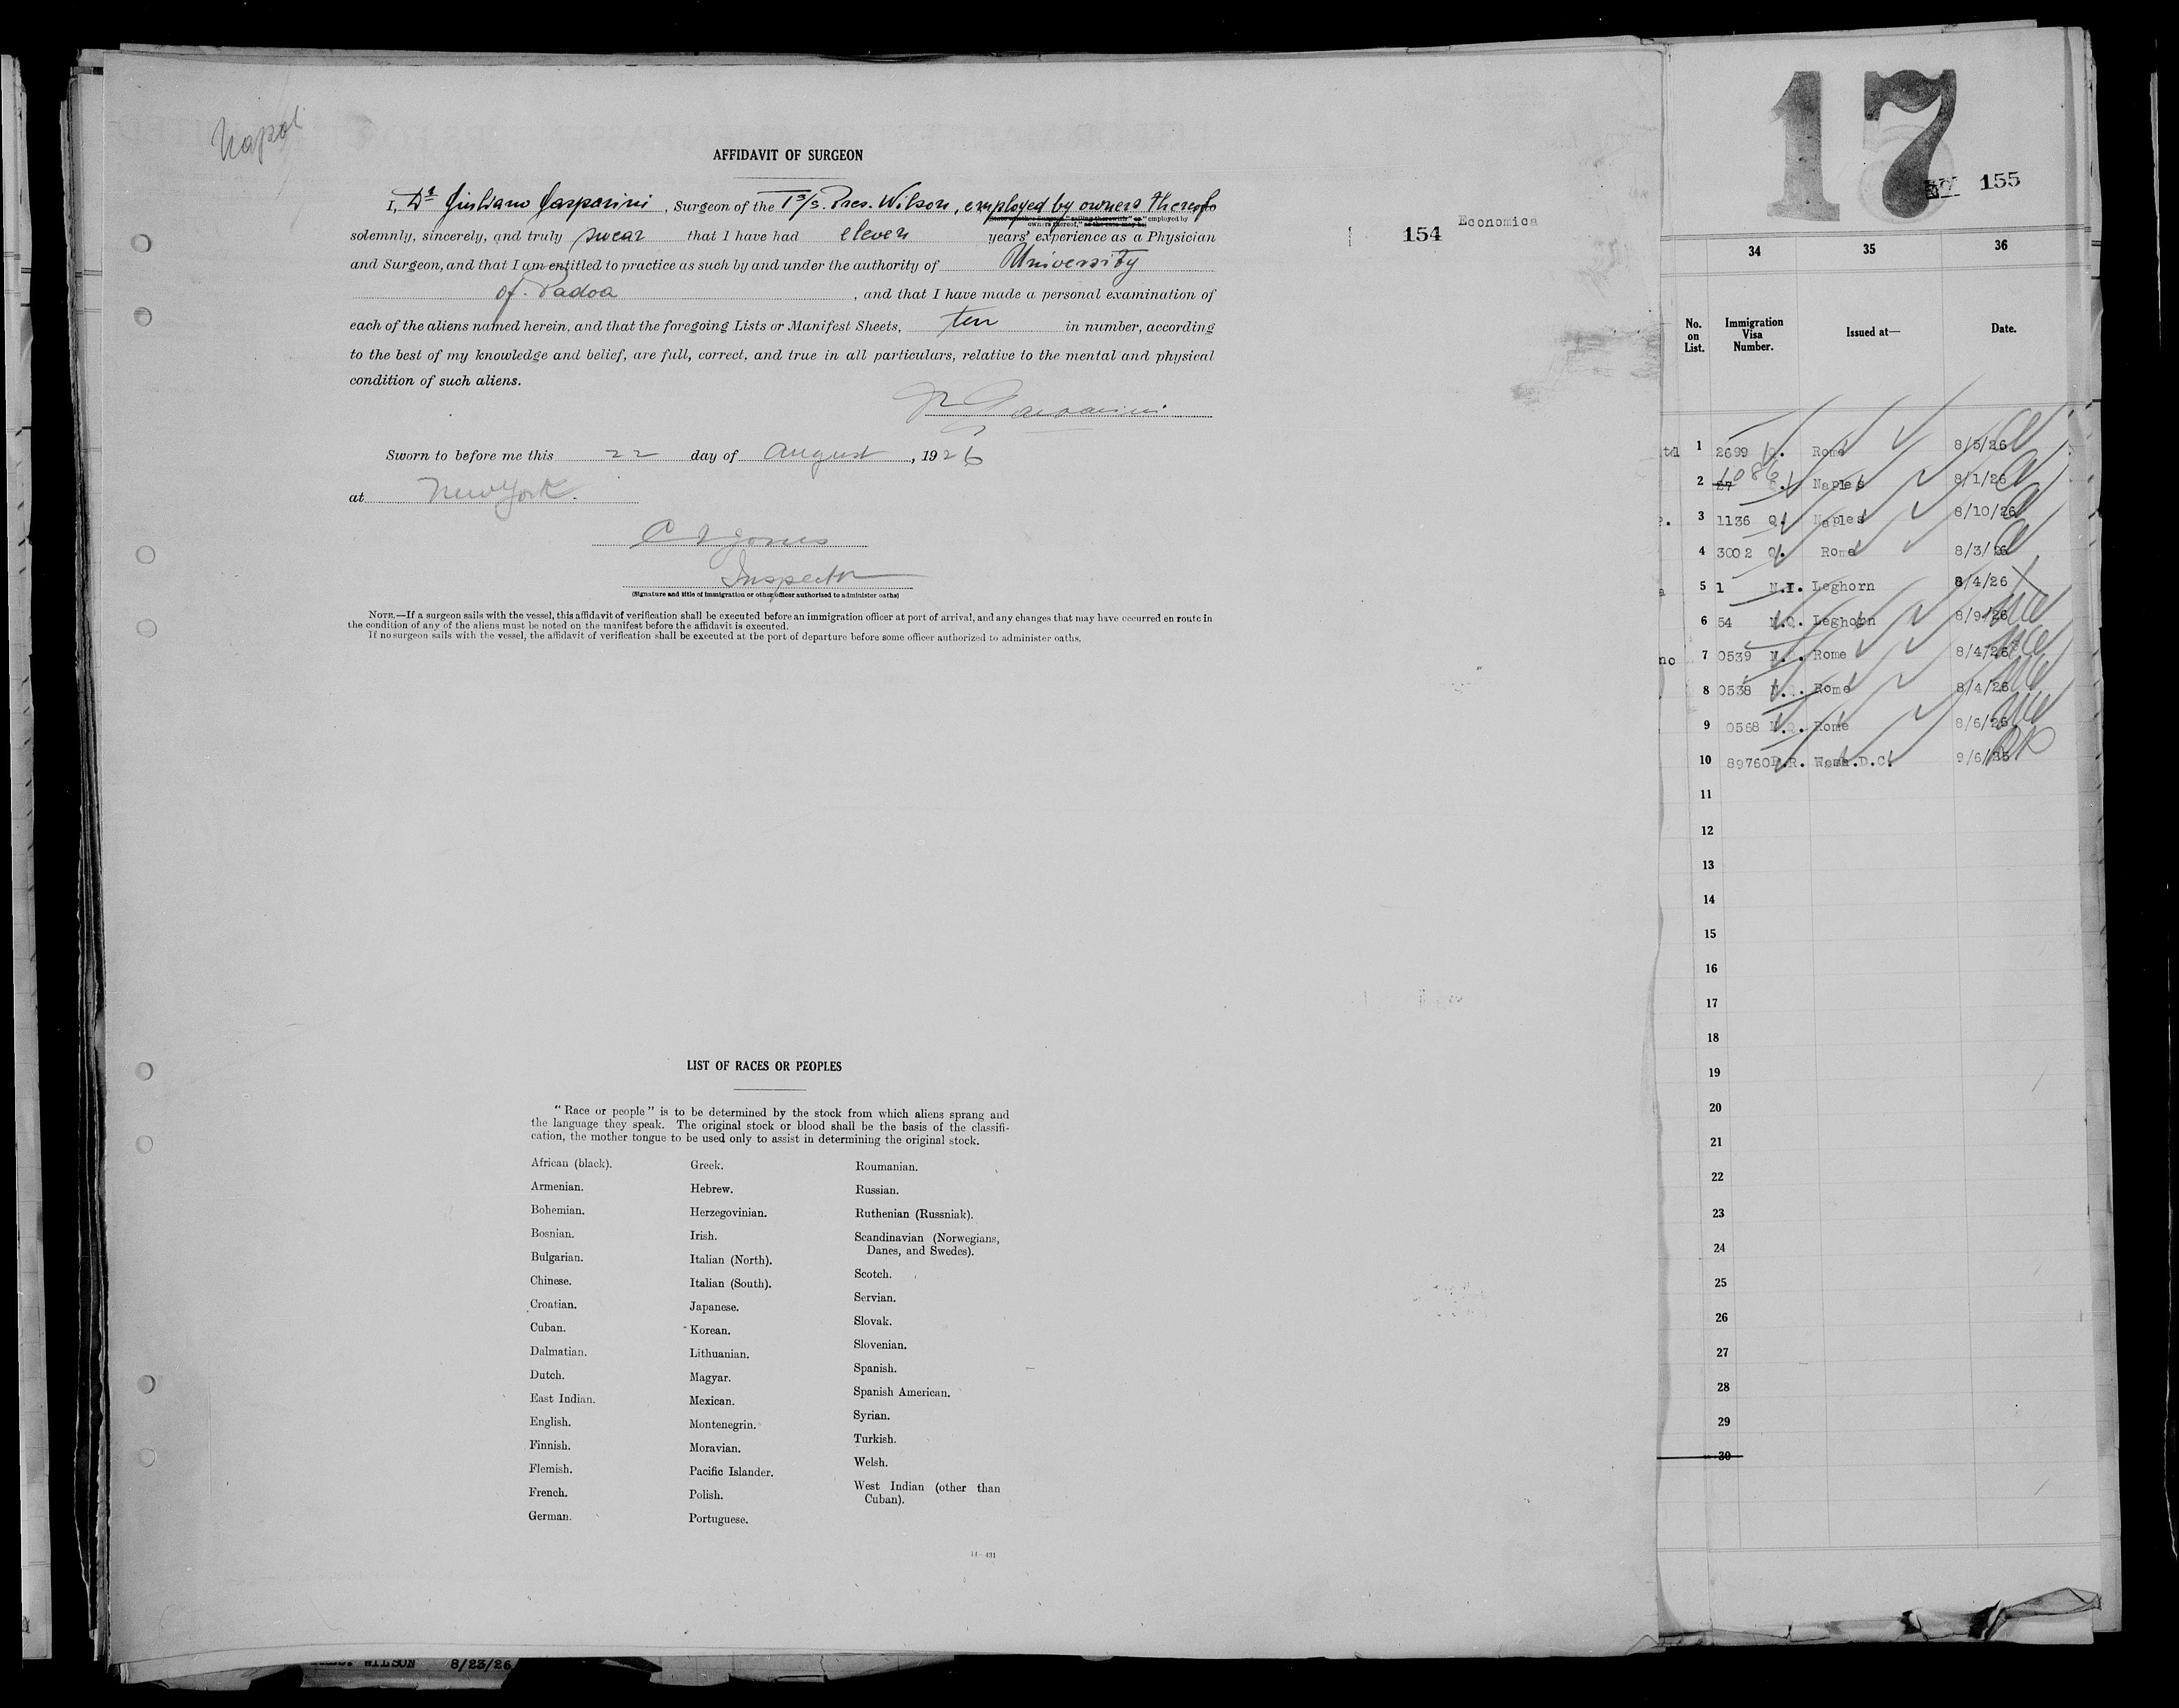 Napoli
AFFIDAVIT OF SURGEON
I, Dr Giuliano Gasparini, Surgeon of the T S/S. Pres. Wilson, employed by owners thereof
owners thereof," employed by
solemnly, sincerely, and truly swear that I have had eleven years' experience as a Physician
and Surgeon, and that I am entitled to practice as such by and under the authority of University
of Padoa, and that I have made a personal examination of
each of the aliens named herein, and that the foregoing Lists or Manifest Sheets, ten in number, according
to the best of my knowledge and belief, are full, correct, and true in all particulars, relative to the mental and physical
condition of such aliens.
Gasparini
Sworn to before me this 22 day of August, 1926
at New York.
Inspector
(Signature and title of immigration or other officer authorized to administer oaths)
NOTE.—If a surgeon sails with the vessel, this affidavit of verification shall be executed before an immigration officer at port of arrival, and any changes that may have occurred en route in
the condition of any of the aliens must be noted on the manifest before the affidavit is executed.
If no surgeon sails with the vessel, the affidavit of verification shall be executed at the port of departure before some officer authorized to administer oaths.
154 Economica
LIST OF RACES OR PEOPLES
"Race or people" is to be determined by the stock from which aliens sprang and
the language they speak. The original stock or blood shall be the basis of the classifi-
cation, the mother tongue to be used only to assist in determining the original stock.
African (black).
Armenian.
Bohemian.
Bosnian.
Bulgarian.
Chinese.
Croatian.
Cuban.
Dalmatian.
Dutch.
East Indian.
English.
Finnish.
Flemish.
French.
German.
Greek.
Hebrew.
Herzegovinian.
Irish.
Italian (North).
Italian (South).
Japanese.
Korean.
Lithuanian.
Magyar.
Mexican.
Montenegrin.
Moravian.
Pacific Islander.
Polish.
Portuguese.
Roumanian.
Russian.
Ruthenian (Russniak).
Scandinavian (Norwegians,
Danes, and Swedes).
Scotch.
Servian.
Slovak.
Slovenian.
Spanish.
Spanish American.
Syrian.
Turkish.
Welsh.
West Indian (other than
Cuban).
14—431
WILSON 8/23/26
17
155
34 35 36
No. on List. Immigration Visa Number. Issued at— Date.
1 2699 Q. Rome 8/5/26
2 27 1086 Q. Naples 8/1/26
3 1136 Q. Naples 8/10/26
4 3002 Q. Rome 8/3/26
5 1 N.I. Leghorn 8/4/26
6 54 N.Q. Leghorn 8/9/26
no 7 0539 N.Q. Rome 8/4/26
8 0538 N.Q. Rome 8/4/26
9 0568 N.Q. Rome 8/6/26
10 89760 P.R. Wash.D.C. 9/6/25
11
12
13
14
15
16
17
18
19
20
21
22
23
24
25
26
27
28
29
30